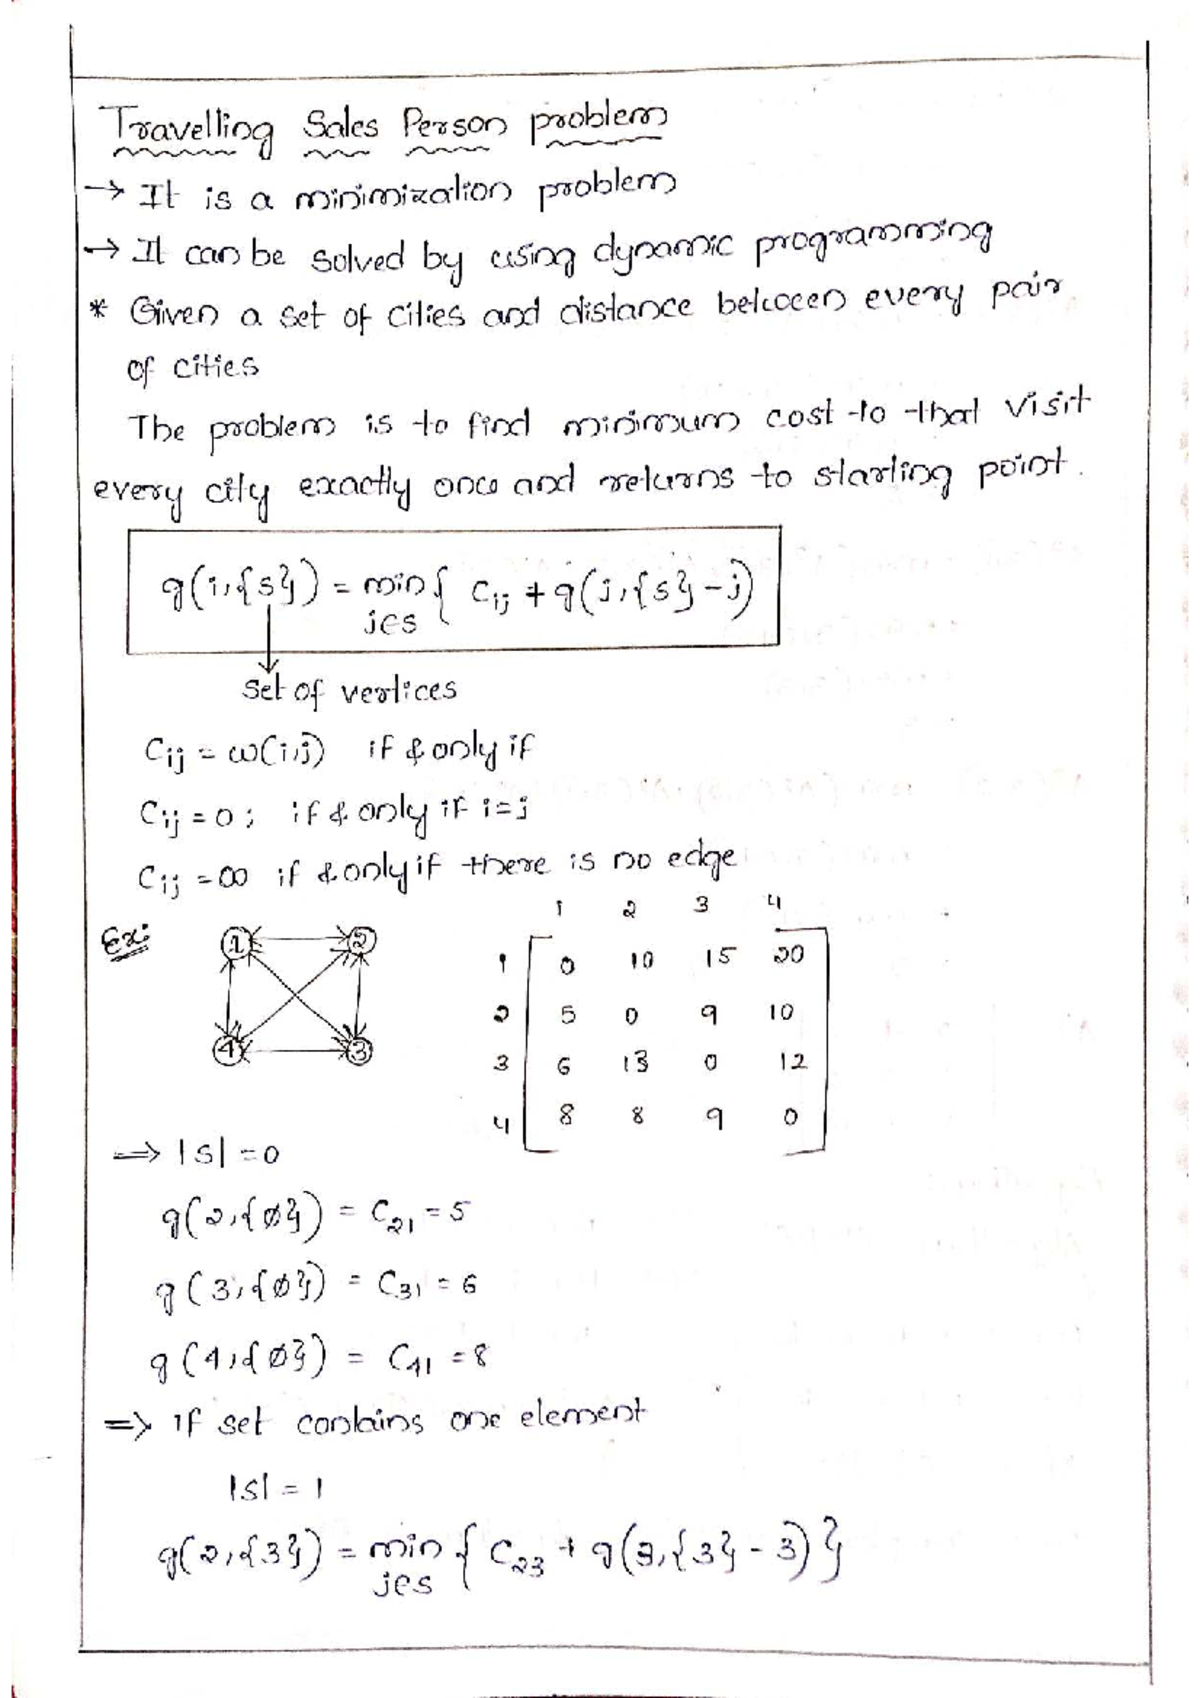 Travelling Sales Person problem
→ It is a minimization problem
→ It can be solved by using dynamic programming
* Given a set of cities and distance between every pair
of cities
The problem is to find minimum cost to that visit
every city exactly once and returns to starting point.
g(i,{s}) = min { Cij + g(j,{s}-j)
j∈s
set of vertices
Cij = w(i,j) if & only if
Cij = 0; if & only if i=j
Cij = ∞ if & only if there is no edge
Ex:
1 2 3 4
1 0 10 15 20
2 5 0 9 10
3 6 13 0 12
4 8 8 9 0
1 2
4 3
⇒ |S| = 0
g(2,{∅}) = C21 = 5
g(3,{∅}) = C31 = 6
g(4,{∅}) = C41 = 8
⇒ If set contains one element
|S| = 1
g(2,{3}) = min { C23 + g(3,{3}-3) }
j∈s